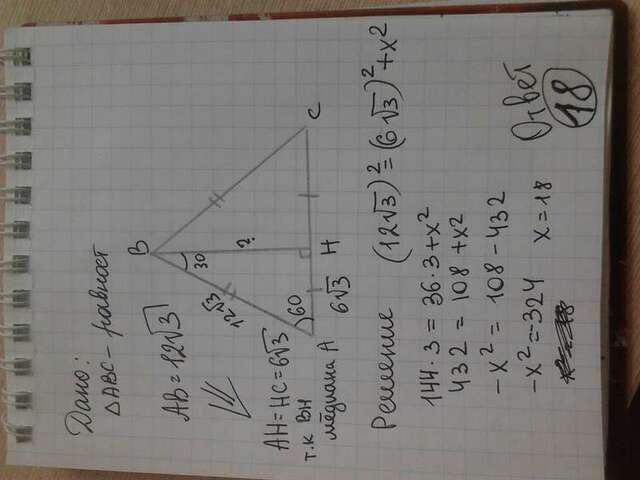 Дано:
△ABC – равност
AB = 12√3
AH = HC = 6√3
т.к BH
медиана
B
30
?
12√3
60
A
6√3
H
C
Решение
(12√3)² = (6√3)² + x²
144·3 = 36·3 + x²
432 = 108 + x²
-x² = 108 - 432
-x² = -324
x = 18
Ответ
18